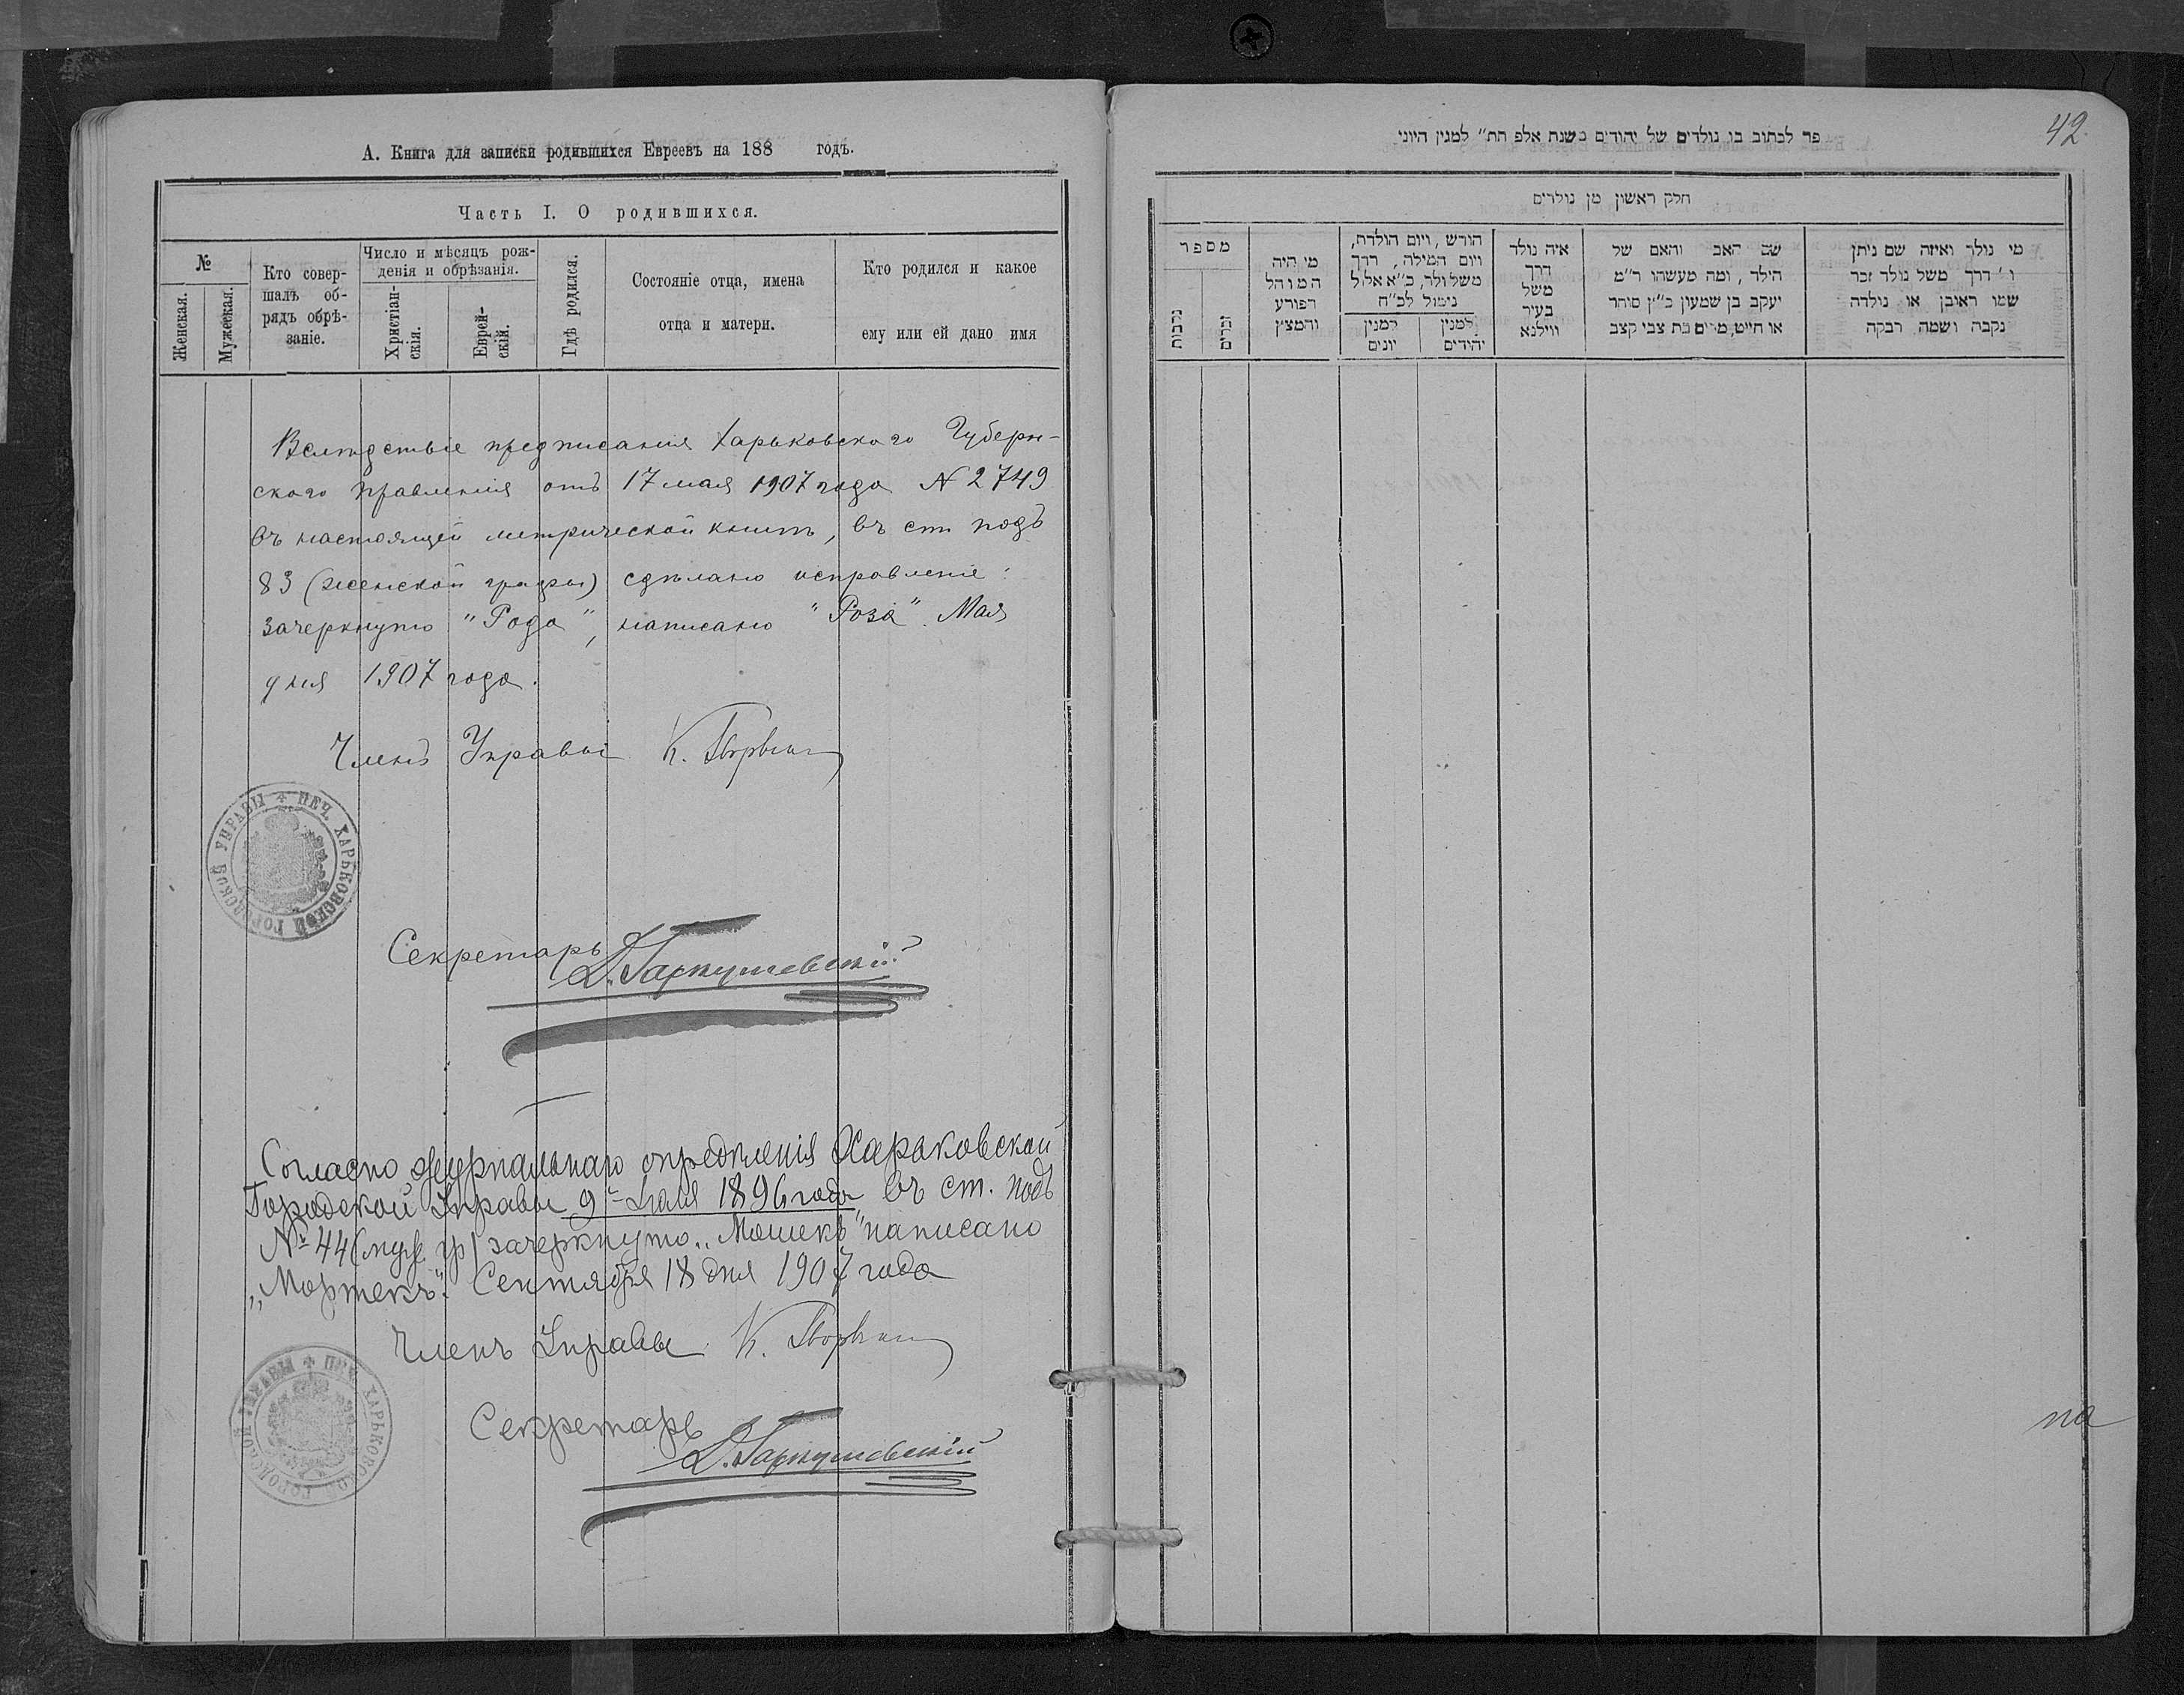 А. Книга для записки родившихся Евреевъ на 188 годъ.
Часть I. О родившихся.
№
Женская.
Мужеская.
Кто совер-
шалъ об-
рядъ обрѣ-
заніе.
Число и мѣсяцъ рож-
денія и обрѣзанія.
Христіан-
скія.
Еврей-
скій.
Гдѣ родился.
Состояніе отца, имена
отца и матери.
Кто родился и какое
ему или ей дано имя
Вслѣдствіе предписанія Харьковскаго Губерн-
скаго Правленія отъ 17 мая 1907 года № 2749
въ настоящей метрической книгѣ, въ ст подъ
83 (женской графы) сдѣлано исправленіе:
зачеркнуто "Рода", написано "Роза". Мая
дня 1907 года.
Членъ Управы К.
ПЕЧ. ХАРЬКОВСКОЙ ГОРОДСКОЙ УПРАВЫ
Секретарь
Согласно журнальнаго опредѣленія Харьковской
Городской Управы 9го 1896 года въ ст. подъ
№ 44 (муж. гр) зачеркнуто „Мошекъ" написано
„Мортекъ". Сентября 18 дня 1907 года
Членъ Управы К.
ПЕЧ. ХАРЬКОВСКОЙ ГОРОДСКОЙ УПРАВЫ
Секретарь
42
פר לכתוב בו נולדים של יהודים בשנת אלפ תת״ למנין היוני
חלק ראשון מן נולדים
מי נולד ואיזה שם ניתן
ו׳ דרך משל נולד זכר
שמו ראובן או נולדה
נקבה ושמה רבקה
שם האב והאם של
הילד, ומה מעשהו ד״מ
יעקב בן שמעון כ״ץ סוחר
או חייט, מרים בת צבי קצב
איה נולד
דרך
משל
בעיר
ווילנא
חורש, ויום הולדת,
ויום המילה, דרך
משל ולד, כ״א אלול
נימול לכ״ח
למנין
יהידים
למנין
יונים
מי היה
המוהל
הפורע
והמצץ
מספר
זכרים
נקבות